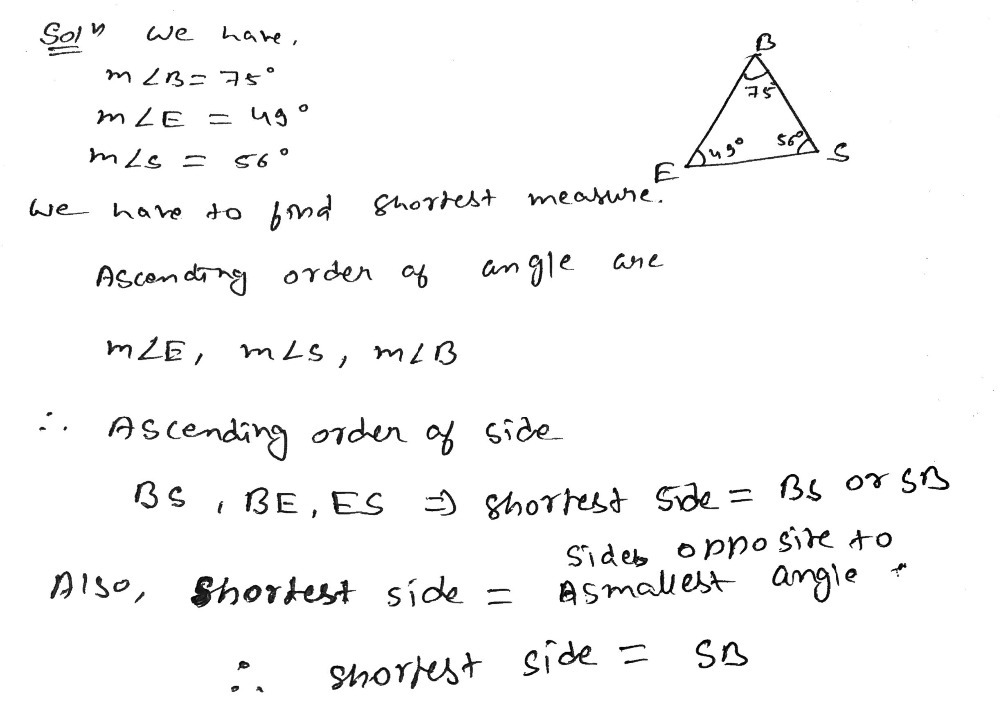 Solⁿ we have,
m∠B = 75°
m∠E = 49°
m∠S = 56°
B
75
E 49° 56° S
we have to find shortest measure.
Ascending order of angle are
m∠E, m∠S, m∠B
∴ Ascending order of side
BS, BE, ES ⇒ shortest side = BS or SB
Also, shortest side = Sides opposite to smallest angle
∴ shortest side = SB